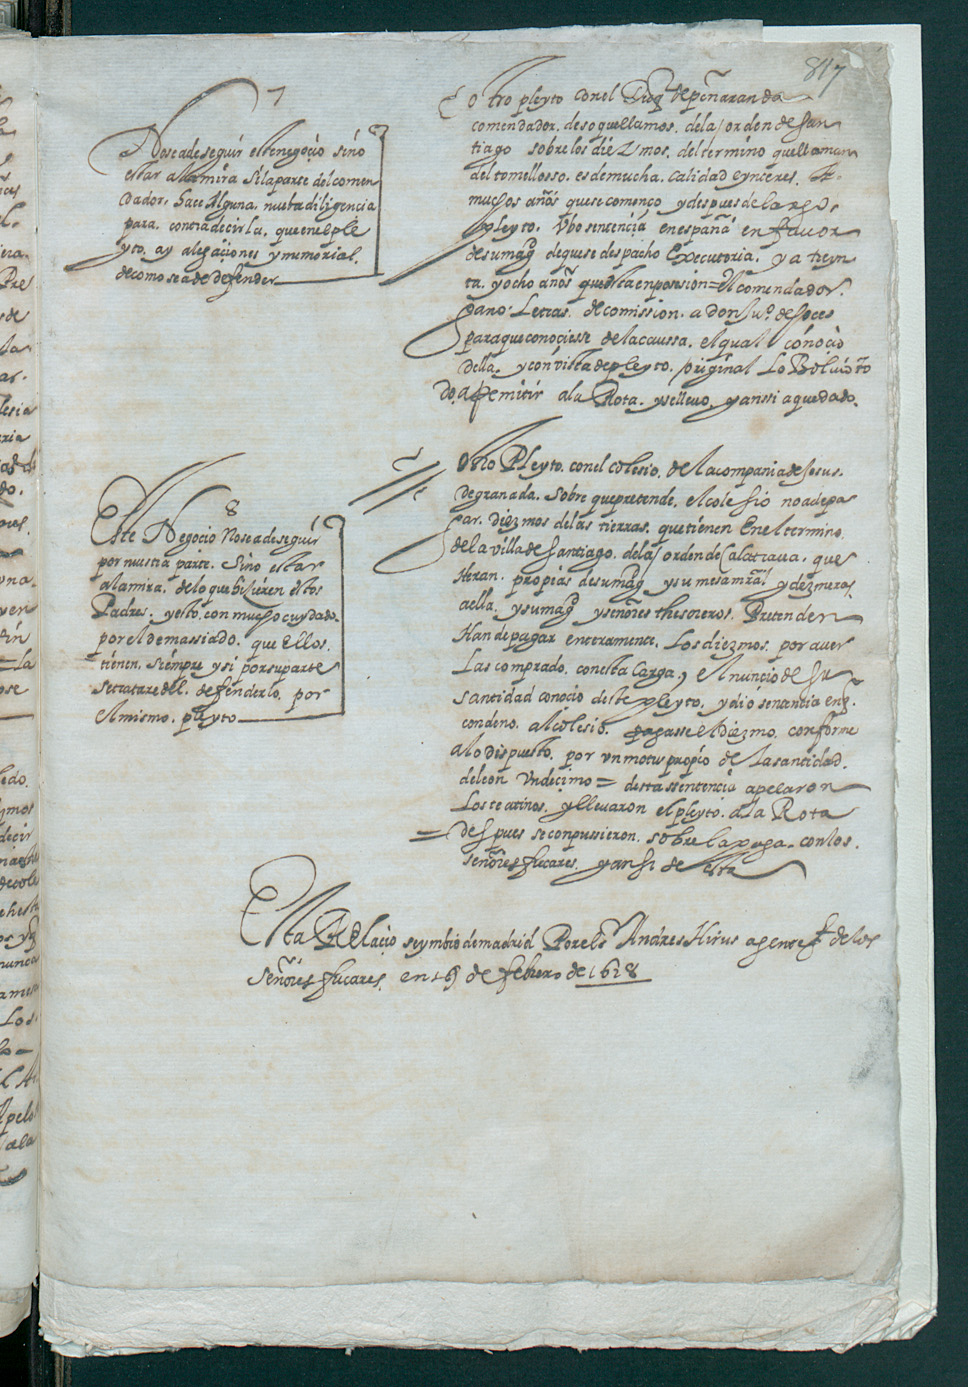 817
7
No se a de seguir este negocio sino
estar a la mira si la parte del comen
dador. hace alguna. nueba diligencia
para. contradecirla, que en el ple
yto. ay alegaçiones y memorial.
de como se a de defender
Otro pleyto con el Duq̃ de peñaranda
comendador. de soquellamos. de la orden de san
tiago sobre los diezmos. del termino que llaman
del tomellosso. es de mucha. calidad e ynteres.
muchos años que se començo y despues de largo.
pleyto. Vbo sentençia en españa en fauor
de su magd de que se despacho Executoria. y a treyn
ta. y ocho años que esta en posesion = el comendador.
gano. Letras. de comission. a don Juº de hoces
para que conoçiesse de la caussa. el qual conoçio
della. y con vista de pleyto. original lo
do. a Remitir a la Rota. y se lleuo. y anssi a quedado.
8
Este Negocio No se a de seguir
por nuestra parte. Sino estar
a la mira. de lo que hisieren estos
Padres. y esto. con mucho cuydado.
por el demassiado. que Ellos.
tienen. siempre y si por su parte
se tratare del. defenderlo. por
el mismo. pleyto
Otro Pleyto. con el colesio. de la compania de Jesus.
de granada. sobre que pretende. el colesio no a de pa
gar. Diezmos de las tierras. que tienen En el termino.
de la villa de Santiago. de la orden de Calatraua. que
Heran. propias de su magd y su mesa mral y dezmeras
a ella. y su magd y señores thesoreros. Pretenden
Han de pagar enteramente. Los diezmos. por auer
las comprado. con esta Carga, el nunçio de su
santidad conocio deste pleyto. y dio sentencia en q̃.
condeno. al colesio. pagasse el Diezmo. conforme
a lo dispuesto. por vn motu propio de la santidad.
de leon Vndecimo = desta ssentencia apelaron
Los teatinos. y lleuaron el pleyto. a la Rota
= despues se conpussieron. sobre la paga. con los.
señores fucares. y ansi se esta
Esta Relacio se ymbio de madrid Por el sr Andres Hirus agente de los
señores fucares. en 19 de febrero de 1628